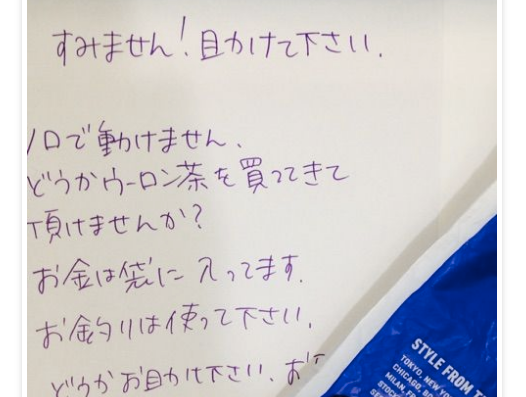 すみません!助けて下さい.
ノロで動けません.
どうかウーロン茶を買ってきて
頂けませんか?
お金は袋に入ってます.
お釣りは使って下さい.
どうかお助け下さい. お
STYLE FROM
TOKYO, NEW
CHICAGO,
MILAN,